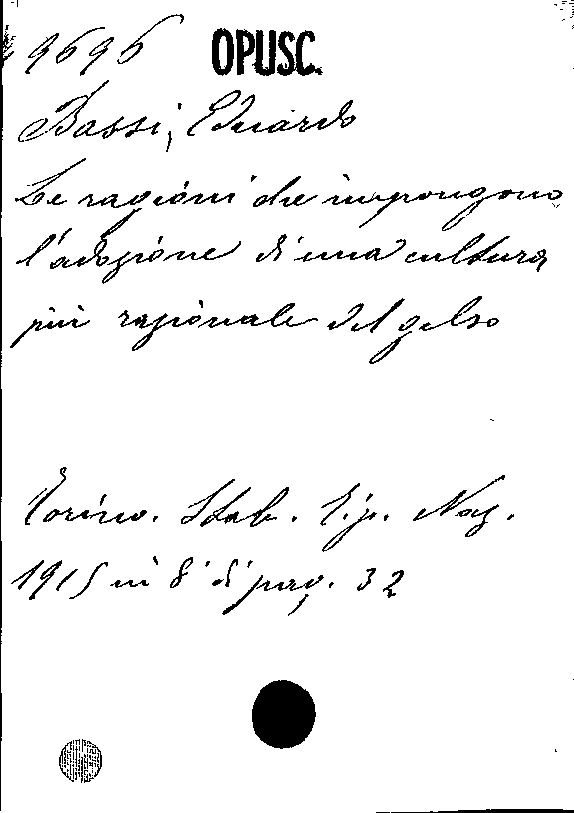 9696 OPUSC.
Bassi, Eduardo
Le ragioni che impongono
l'adozione di una cultura
più razionale del gelso
Torino. Stab. Tip. Naz.
1915 in 8° di pag. 32